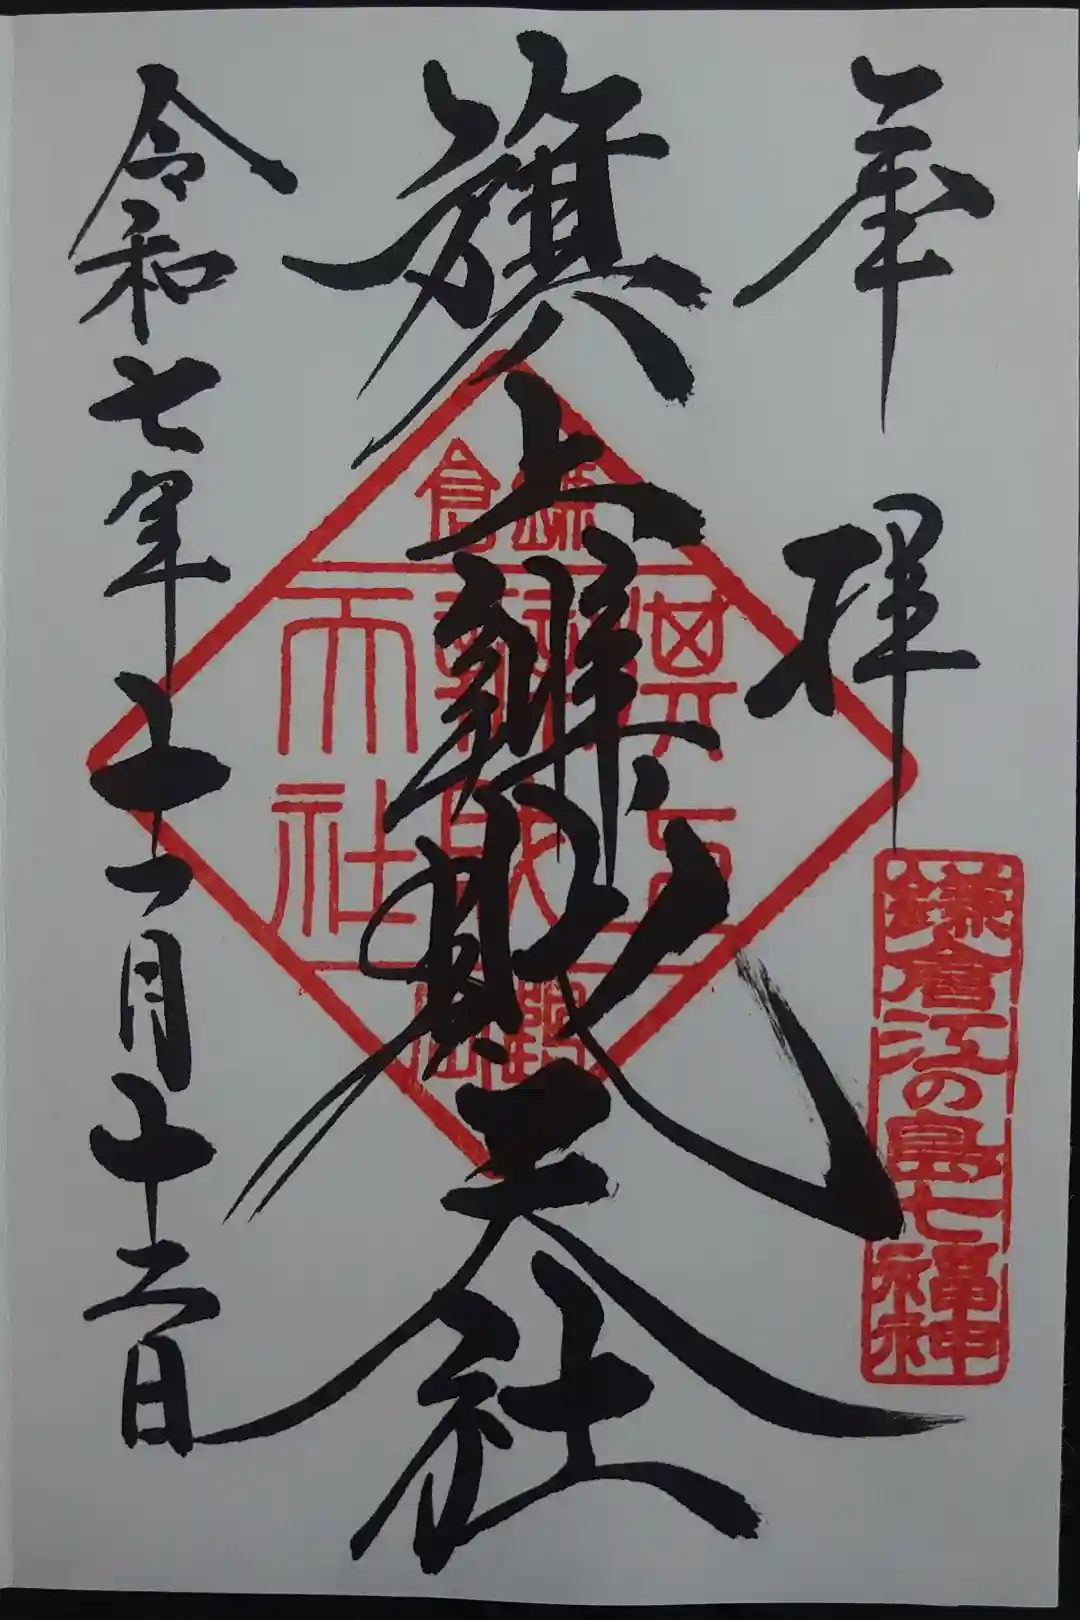 奉拝
鎌倉江の島七福神
旗上辨財天社
鎌倉
旗上
辨財
天社
鶴岡
令和七年十一月十二日